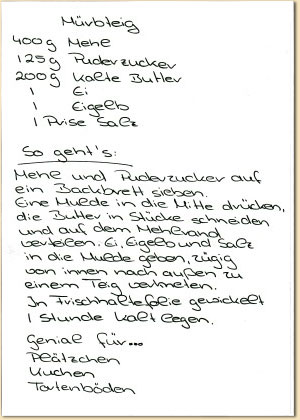 Mürbteig
400g Mehl
125g Puderzucker
200g kalte Butter
1 Ei
1 Eigelb
1 Prise Salz
So geht's:
Mehl und Puderzucker auf
ein Backbrett sieben.
Eine Mulde in die Mitte drücken,
die Butter in Stücke schneiden
und auf dem Mehlrand
verteilen. Ei, Eigelb und Salz
in die Mulde geben, zügig
von innen nach außen zu
einem Teig verkneten.
In Frischhaltefolie gewickelt
1 Stunde kalt legen.
Genial für...
Plätzchen
Kuchen
Tortenböden